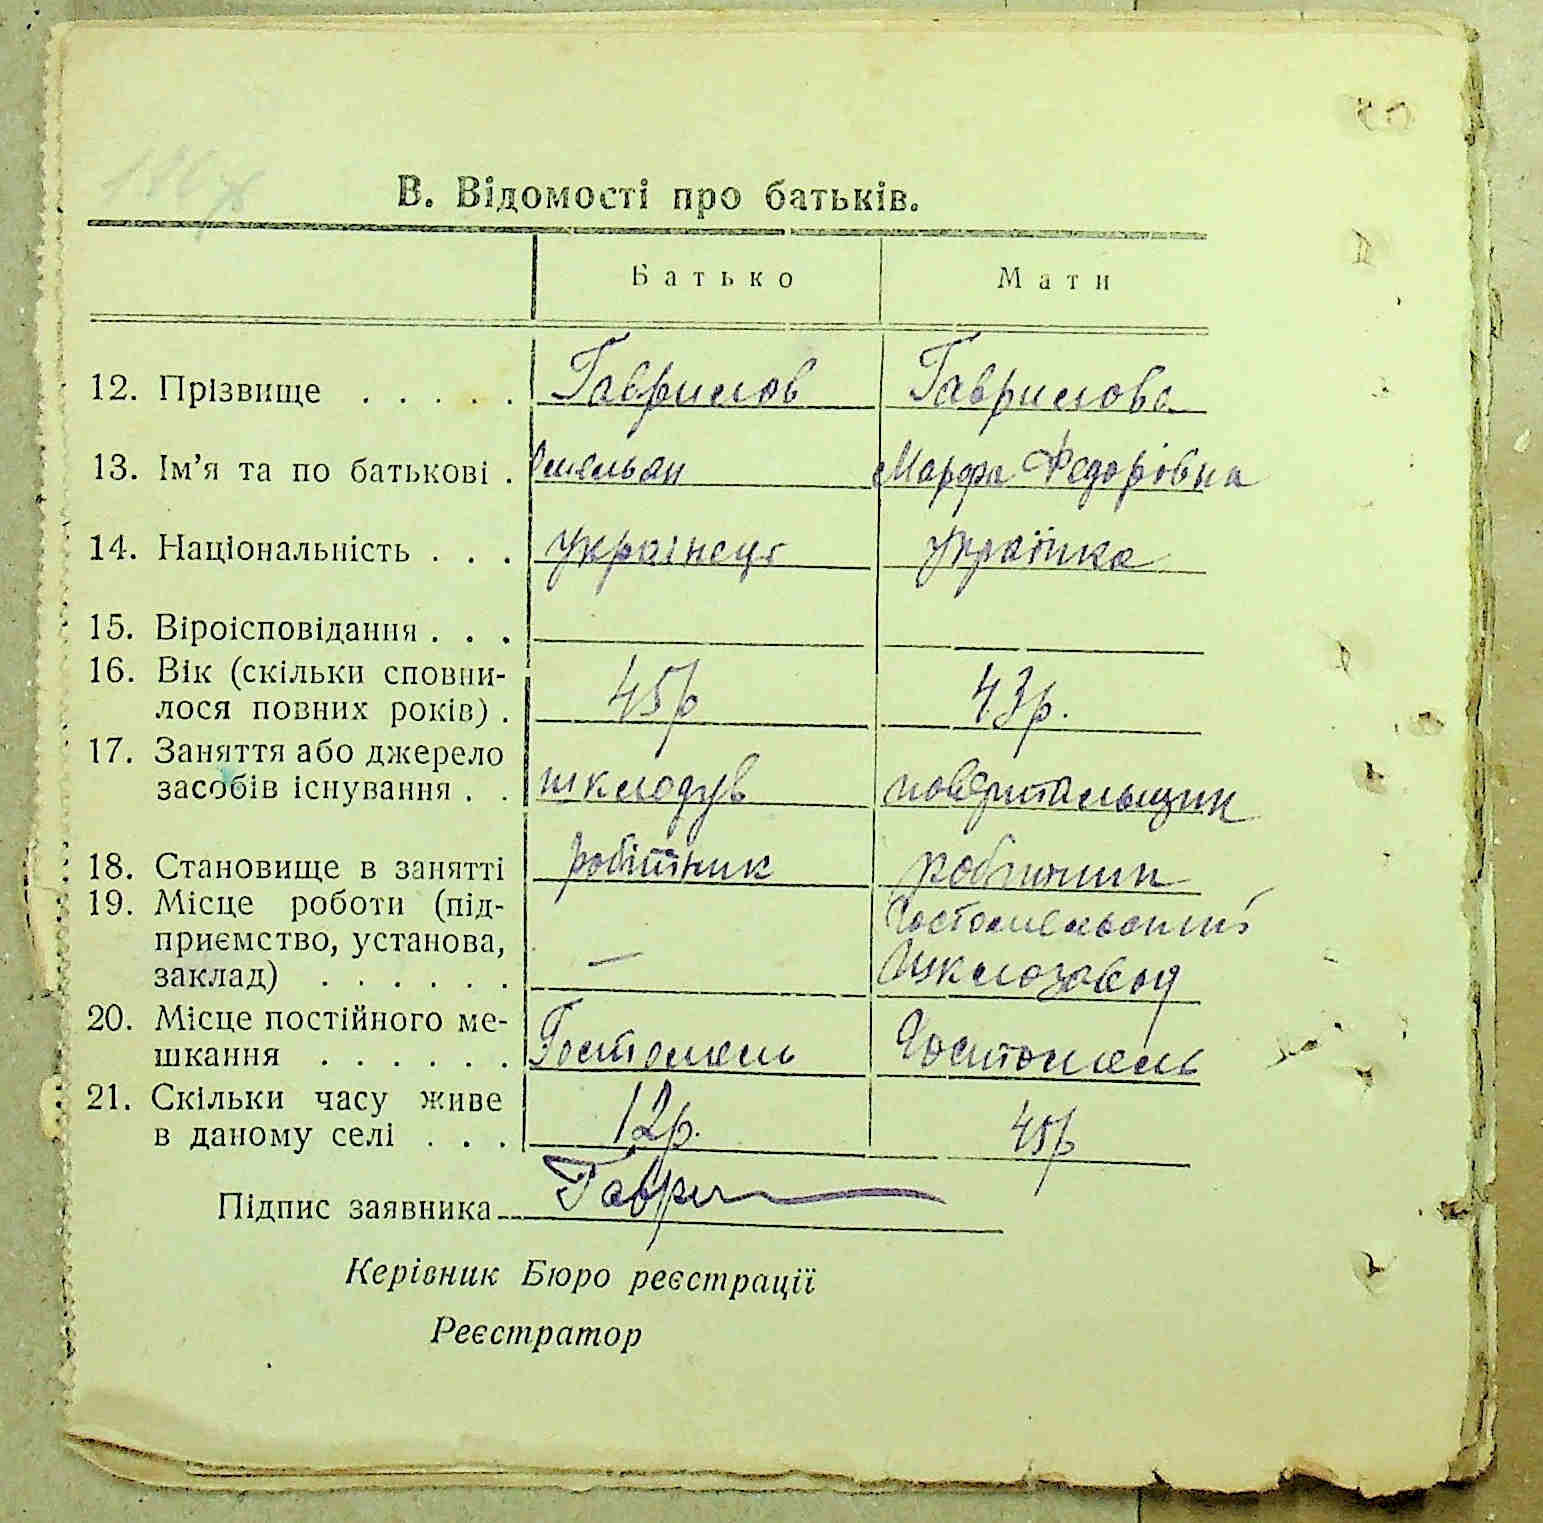 В. Відомості про батьків.
Батько Мати
12. Прізвище . . . . . Гаврилов Гаврилова
13. Ім’я та по батькові . Омельян Марфа Федорівна
14. Національність . . . українець українка
15. Віроісповідання . . .
16. Вік (скільки сповни-
лося повних років) . 45р 43р.
17. Заняття або джерело
засобів існування . . шклодув
18. Становище в занятті робітник робітник
19. Місце роботи (під-
приємство, установа,
заклад) . . . . . . — Гостомельський Шклозавод
20. Місце постійного ме-
шкання . . . . . . Гостомель Гостомель
21. Скільки часу живе
в даному селі . . . 12р. 45р
Підпис заявника Гаври
Керівник Бюро реєстрації
Реєстратор